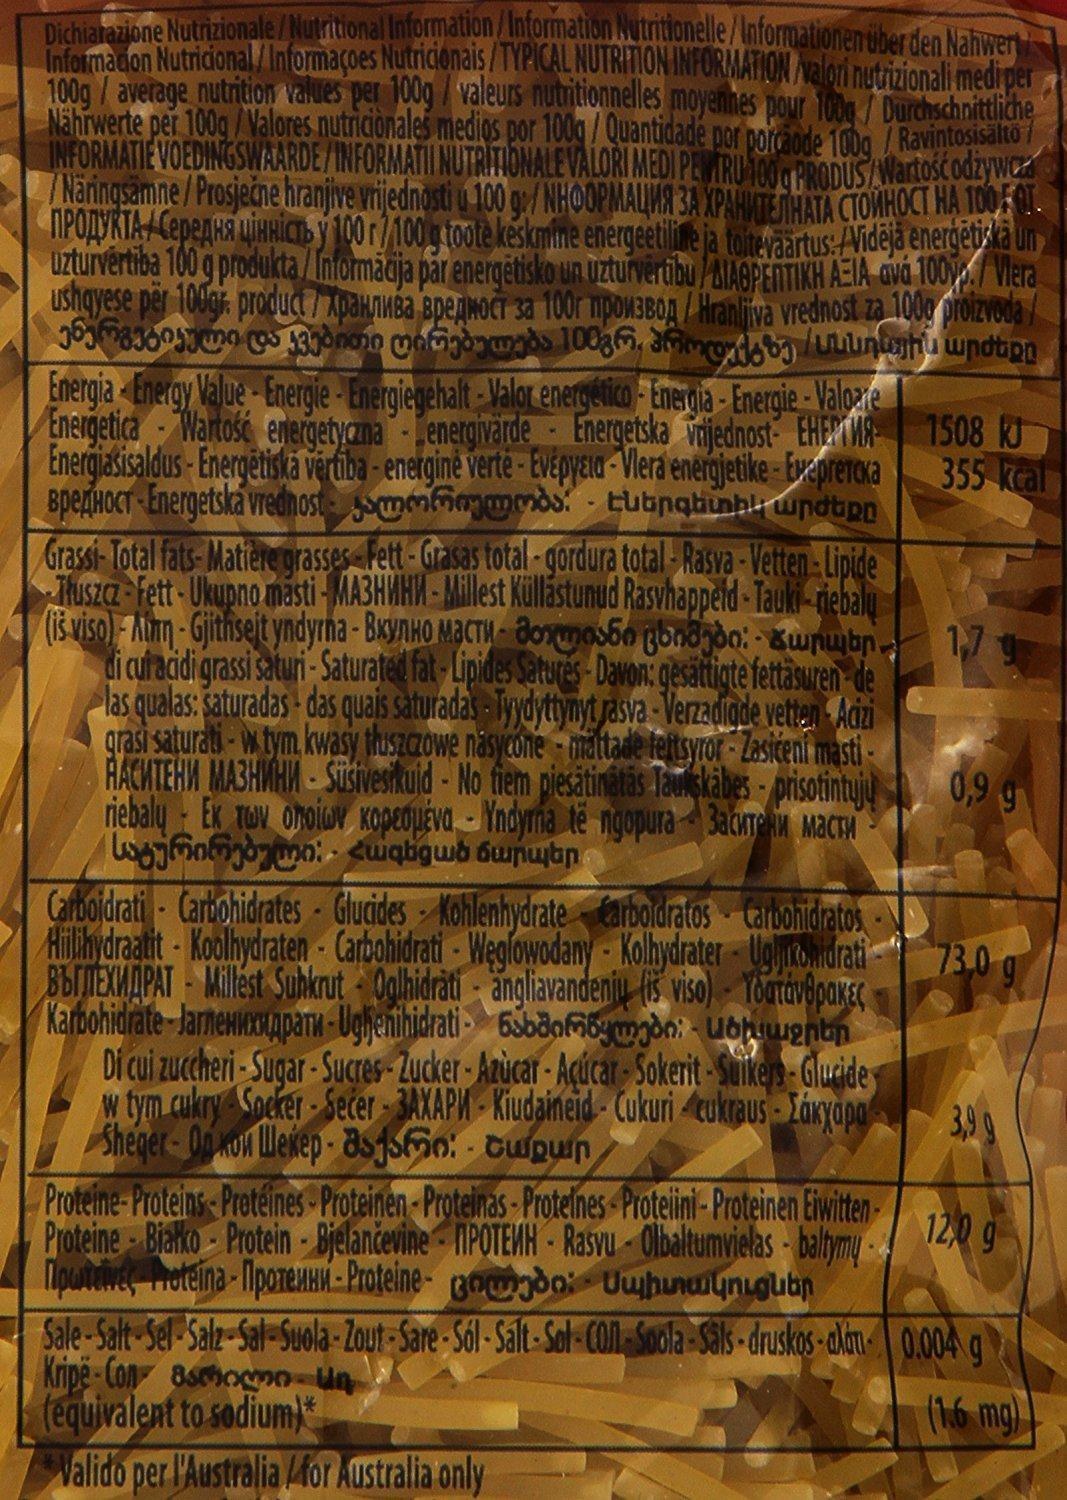 Dichiarazione Nutrizionale / Nutritional Information / Information Nutritionelle / Informationen über den Nahwert /
Informacion Nutricional / Informaçoes Nutricionais / TYPICAL NUTRITION INFORMATION / valori nutrizionali medi per
100g / average nutrition values per 100g / valeurs nutritionnelles moyennes pour 100g / Durchschnittliche
Nährwerte per 100g / Valores nutricionales medios por 100g / Quantidade por porçaode 100g / Ravintosisältö /
INFORMATIE VOEDINGSWAARDE / INFORMATII NUTRITIONALE VALORI MEDI PENTRU 100 g PRODUS / Wartość odżywcza
/ Näringsämne / Prosječne hranjive vrijednosti u 100 g: / NHФОРМАЦИЯ ЗА ХРАНИТЕЛНАТА СТОЙНОСТ НА 100 Г ОТ
ПРОДУКТА / Середня цінність у 100 г / 100 g toote keskmine energeetiline ja toiteväärtus: / Vidējā enerģētiskā un
uzturvērtība 100 g produkta / Informācija par enerģētisko un uzturvērtību / ΔΙΑΘΡΕΠΤΙΚΗ ΑΞΙΑ ανά 100γρ. / Vlera
ushqyese për 100gr. product / Хранлива вредност за 100г производ / Hranljiva vrednost za 100g proizvoda /
ენერგეტიკული და კვებითი ღირებულება 100გრ. პროდუქტზე / Սննդային արժեքը
Energia - Energy Value - Energie - Energiegehalt - Valor energético - Energia - Energie - Valoare
Energetica - Wartość energetyczna - energivärde - Energetska vrijednost- ЕНЕРГИЯ- 1508 kJ
Energiasisaldus - Enerģētiskā vērtība - energinė vertė - Ενέργεια - Vlera energjetike - Енергетска 355 kcal
вредност - Energetska vrednost - კალორიულობა: - Էներգետիկ արժեքը
Grassi- Total fats- Matière grasses - Fett - Grasas total - gordura total - Rasva - Vetten - Lipide
- Tłuszcz - Fett - Ukupno masti - МАЗНИНИ - Millest Küllastunud Rasvhapped - Tauki - riebalų
(iš viso) - Λίπη - Gjithsejt yndyrna - Вкупно масти - მთლიანი ცხიმები: - Ճարպեր - 1,7 g
di cui acidi grassi saturi - Saturated fat - Lipides Saturés - Davon: gesättigte fettäsuren - de
las qualas: saturadas - das quais saturadas - Tyydyttynyt rasva - Verzadigde vetten - Acizi
grasi saturati - w tym kwasy tłuszczowe nasycone - mättade fettsyror - Zasićeni masti -
НАСИТЕНИ МАЗНИНИ - Süsivesikuid - No tiem piesātinātās Taukskābes - prisotintųjų 0,9 g
riebalų - Εκ των οποίων κορεσμένα - Yndyrna të ngopura - Заситени масти -
სატურირებული: - Հագեցած ճարպեր
Carboidrati - Carbohidrates - Glucides - Kohlenhydrate - Carboidratos - Carbohidratos -
Hiilihydraatit - Koolhydraten - Carbohidrati - Węglowodany - Kolhydrater - Ugljikohidrati - 73,0 g
ВЪГЛЕХИДРАТ - Millest Suhkrut - Ogļhidrāti - angliavandenių (iš viso) - Υδατάνθρακες -
Karbohidrate - Јагленихидрати - Ugljenihidrati - ნახშირწყლები: - Ածխաջրեր
Di cui zuccheri - Sugar - Sucres - Zucker - Azùcar - Açúcar - Sokerit - Suikers - Glucide -
w tym cukry - Socker - Šećer - ЗАХАРИ - Kiudaineid - Cukuri - cukraus - Σάκχαρα - 3,9 g
Sheqer - Од кои Шеќер - შაქარი: - Շաքար
Proteine- Proteins - Protéines - Proteinen - Proteinas - Proteînes - Proteiini - Proteinen Eiwitten -
Proteine - Białko - Protein - Bjelančevine - ПРОТЕИН - Rasvu - Olbaltumvielas - baltymų - 12,0 g
Πρωτεΐνες - Proteina - Протеини - Proteine - ცილები: - Սպիտակուցներ
Sale - Salt - Sel - Salz - Sal - Suola - Zout - Sare - Sól - Salt - Sol - СОЛ - Soola - Sāls - druskos - αλάτι - 0.004 g
Kripë - Сол - მარილი - Աղ
(equivalent to sodium)* (1.6 mg)
* Valido per l'Australia / for Australia only